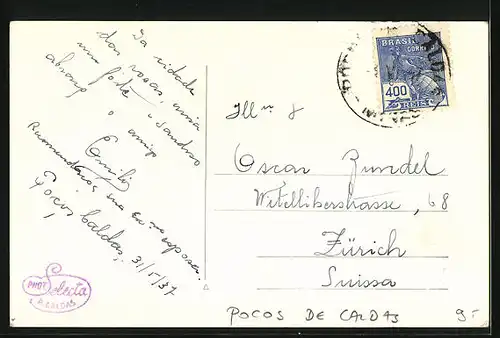 Da cidade
das rosas, uma
um forte e saudoso
abraço
o amigo
Emilio
Recomendações sua Exma esposa.
Poços Caldas, 31/5/37
PHOT Selecta
P. CALDAS
BRASIL
CORREIO
400
REIS
Illmo S
Oscar Zundel
Witellikerstrasse, 68
Zürich
Suissa
POCOS DE CALDAS 9-